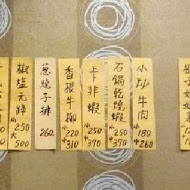 小炒牛肉
180
260
石鍋乾燒蝦
250
370
卡非蝦
250
370
香根牛柳
220
310
蔥燒子排
260
椒鹽元蹄
250
500